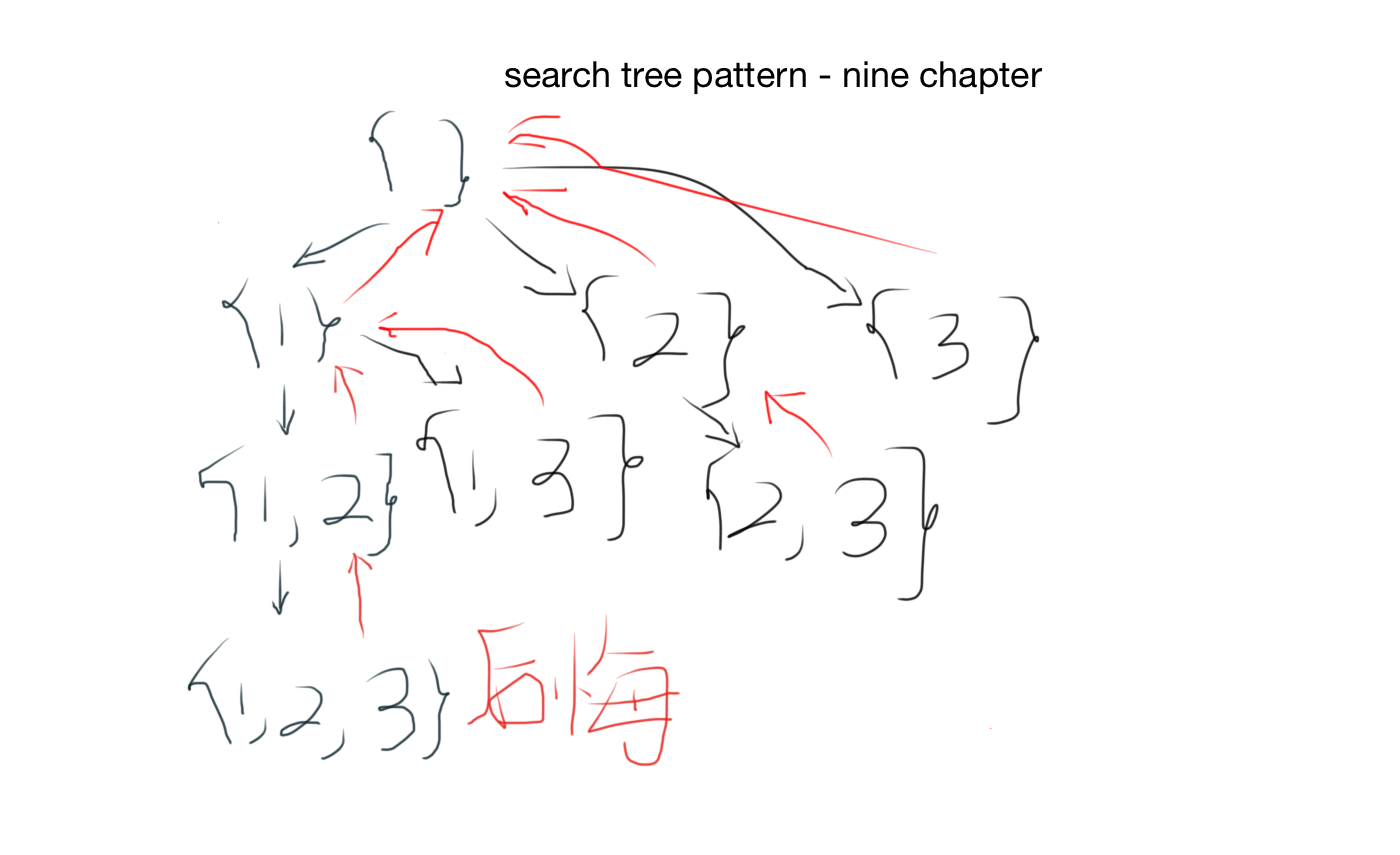 search tree pattern - nine chapter
{ }
{1} {2} {3}
{1,2} {1,3} {2,3}
{1,2,3} 后悔